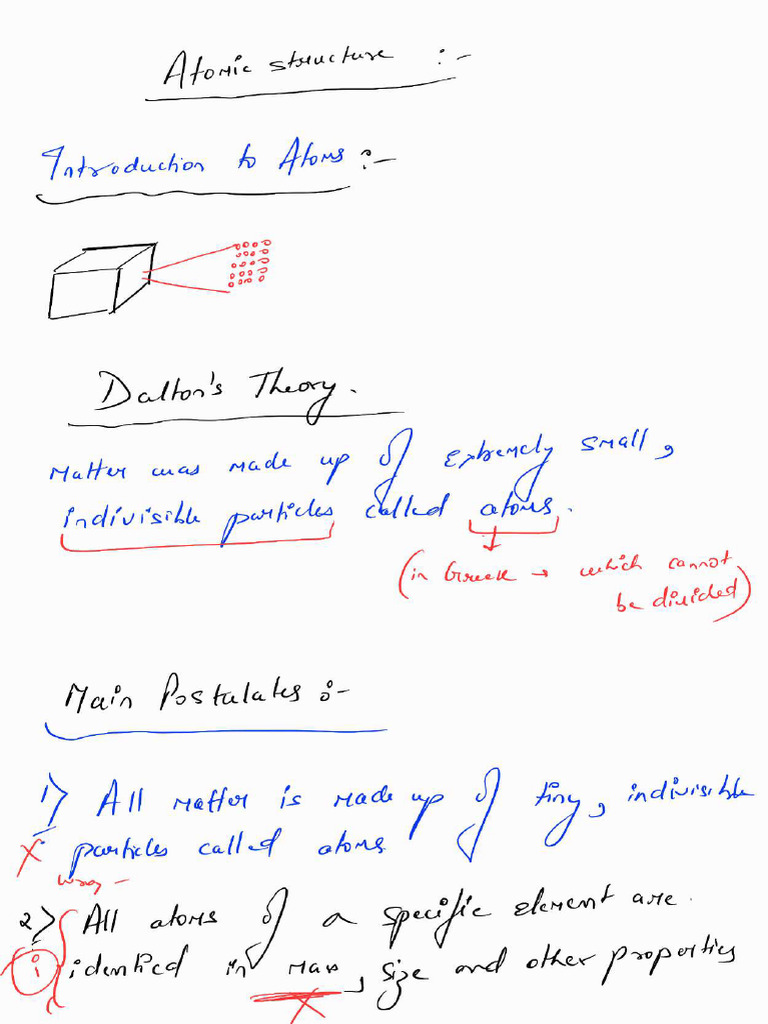 Atomic structure :-
Introduction to Atoms :-
Dalton's Theory.
Matter was made up of extremely small,
indivisible particles called atoms.
(in Greek → which cannot
be divided)
Main Postulates :-
1) All matter is made up of tiny, indivisible
x particles called atoms
wrong -
2) All atoms of a specific element are.
i identical in mass, size and other properties
x